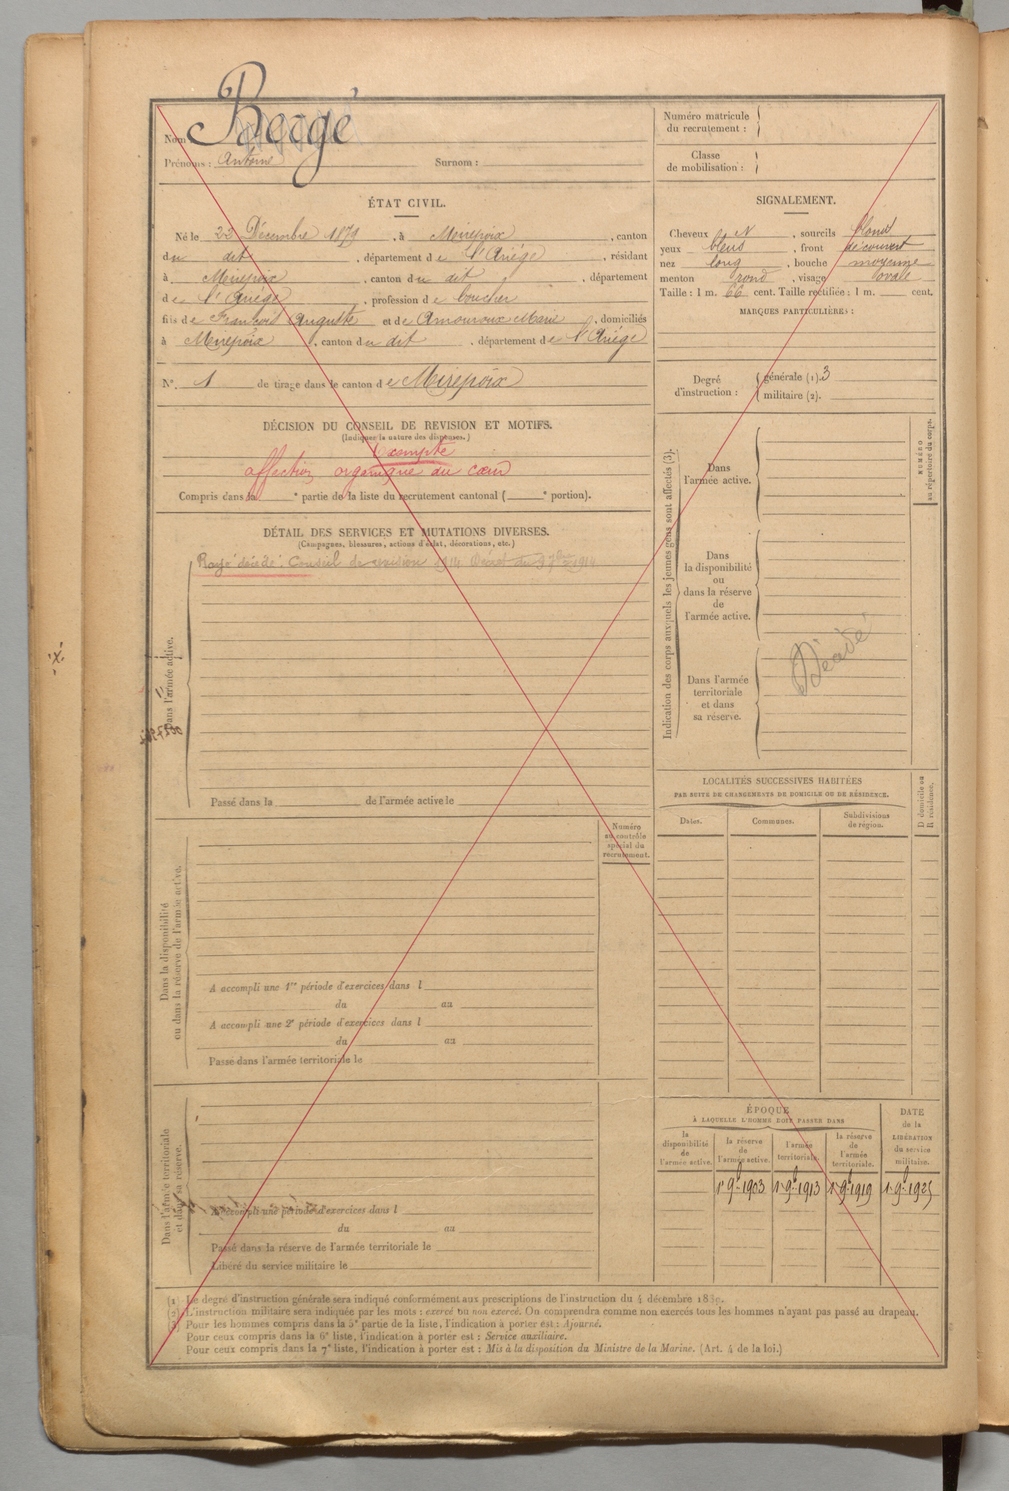 Nom Bergé
Prénoms : Antoine Surnom :
Numéro matricule
du recrutement :
Classe
de mobilisation :
ÉTAT CIVIL.
Né le 22 Décembre 1879, à Mirepoix, canton
du dit, département de l'Ariège, résidant
à Mirepoix, canton du dit, département
de l'Ariège, profession de boucher
fils de François Auguste et de Amouroux Marie, domiciliés
à Mirepoix, canton du dit, département de l'Ariège
N° 1 de tirage dans le canton de Mirepoix
SIGNALEMENT.
Cheveux N, sourcils blond
yeux bleus, front découvert
nez long, bouche moyenne
menton rond, visage ovale
Taille : 1 m. 66 cent. Taille rectifiée : 1 m. cent.
MARQUES PARTICULIÈRES :
Degré
d'instruction :
générale (1). 3
militaire (2).
DÉCISION DU CONSEIL DE REVISION ET MOTIFS.
(Indiquer la nature des dispenses.)
Exempté
affection organique du cœur
Compris dans la e partie de la liste du recrutement cantonal ( e portion).
DÉTAIL DES SERVICES ET MUTATIONS DIVERSES.
(Campagnes, blessures, actions d'éclat, décorations, etc.)
Rayé décédé. Conseil de revision 1914 Décret du 9 7bre 1914
Dans l'armée active.
Passé dans la de l'armée active le
Numéro
au contrôle
spécial du
recrutement.
Dans la disponibilité
ou dans la réserve de l'armée active.
A accompli une 1re période d'exercices dans l
du au
A accompli une 2e période d'exercices dans l
du au
Passé dans l'armée territoriale le
Dans l'armée territoriale
et dans sa réserve.
A accompli une période d'exercices dans l
du au
Passé dans la réserve de l'armée territoriale le
Libéré du service militaire le
Indication des corps auxquels les jeunes gens sont affectés (3).
NUMÉRO
au répertoire du corps.
Dans
l'armée active.
Dans
la disponibilité
ou
dans la réserve
de
l'armée active.
Dans l'armée
territoriale
et dans
sa réserve.
Décédé
LOCALITÉS SUCCESSIVES HABITÉES
PAR SUITE DE CHANGEMENTS DE DOMICILE OU DE RÉSIDENCE.
D domicile ou
R résidence.
Dates.
Communes.
Subdivisions
de région.
ÉPOQUE
À LAQUELLE L'HOMME DOIT PASSER DANS
la
disponibilité
de
l'armée active.
la réserve
de
l'armée active.
l'armée
territoriale.
la réserve
de
l'armée
territoriale.
DATE
de la
LIBÉRATION
du service
militaire.
1er 9bre 1903 1er 9bre 1913 1er 9bre 1919 1er 9bre 1925
(1) Le degré d'instruction générale sera indiqué conformément aux prescriptions de l'instruction du 4 décembre 1889.
(2) L'instruction militaire sera indiquée par les mots : exercé ou non exercé. On comprendra comme non exercés tous les hommes n'ayant pas passé au drapeau.
(3) Pour les hommes compris dans la 5e partie de la liste, l'indication à porter est : Ajourné.
Pour ceux compris dans la 6e liste, l'indication à porter est : Service auxiliaire.
Pour ceux compris dans la 7e liste, l'indication à porter est : Mis à la disposition du Ministre de la Marine. (Art. 4 de la loi.)